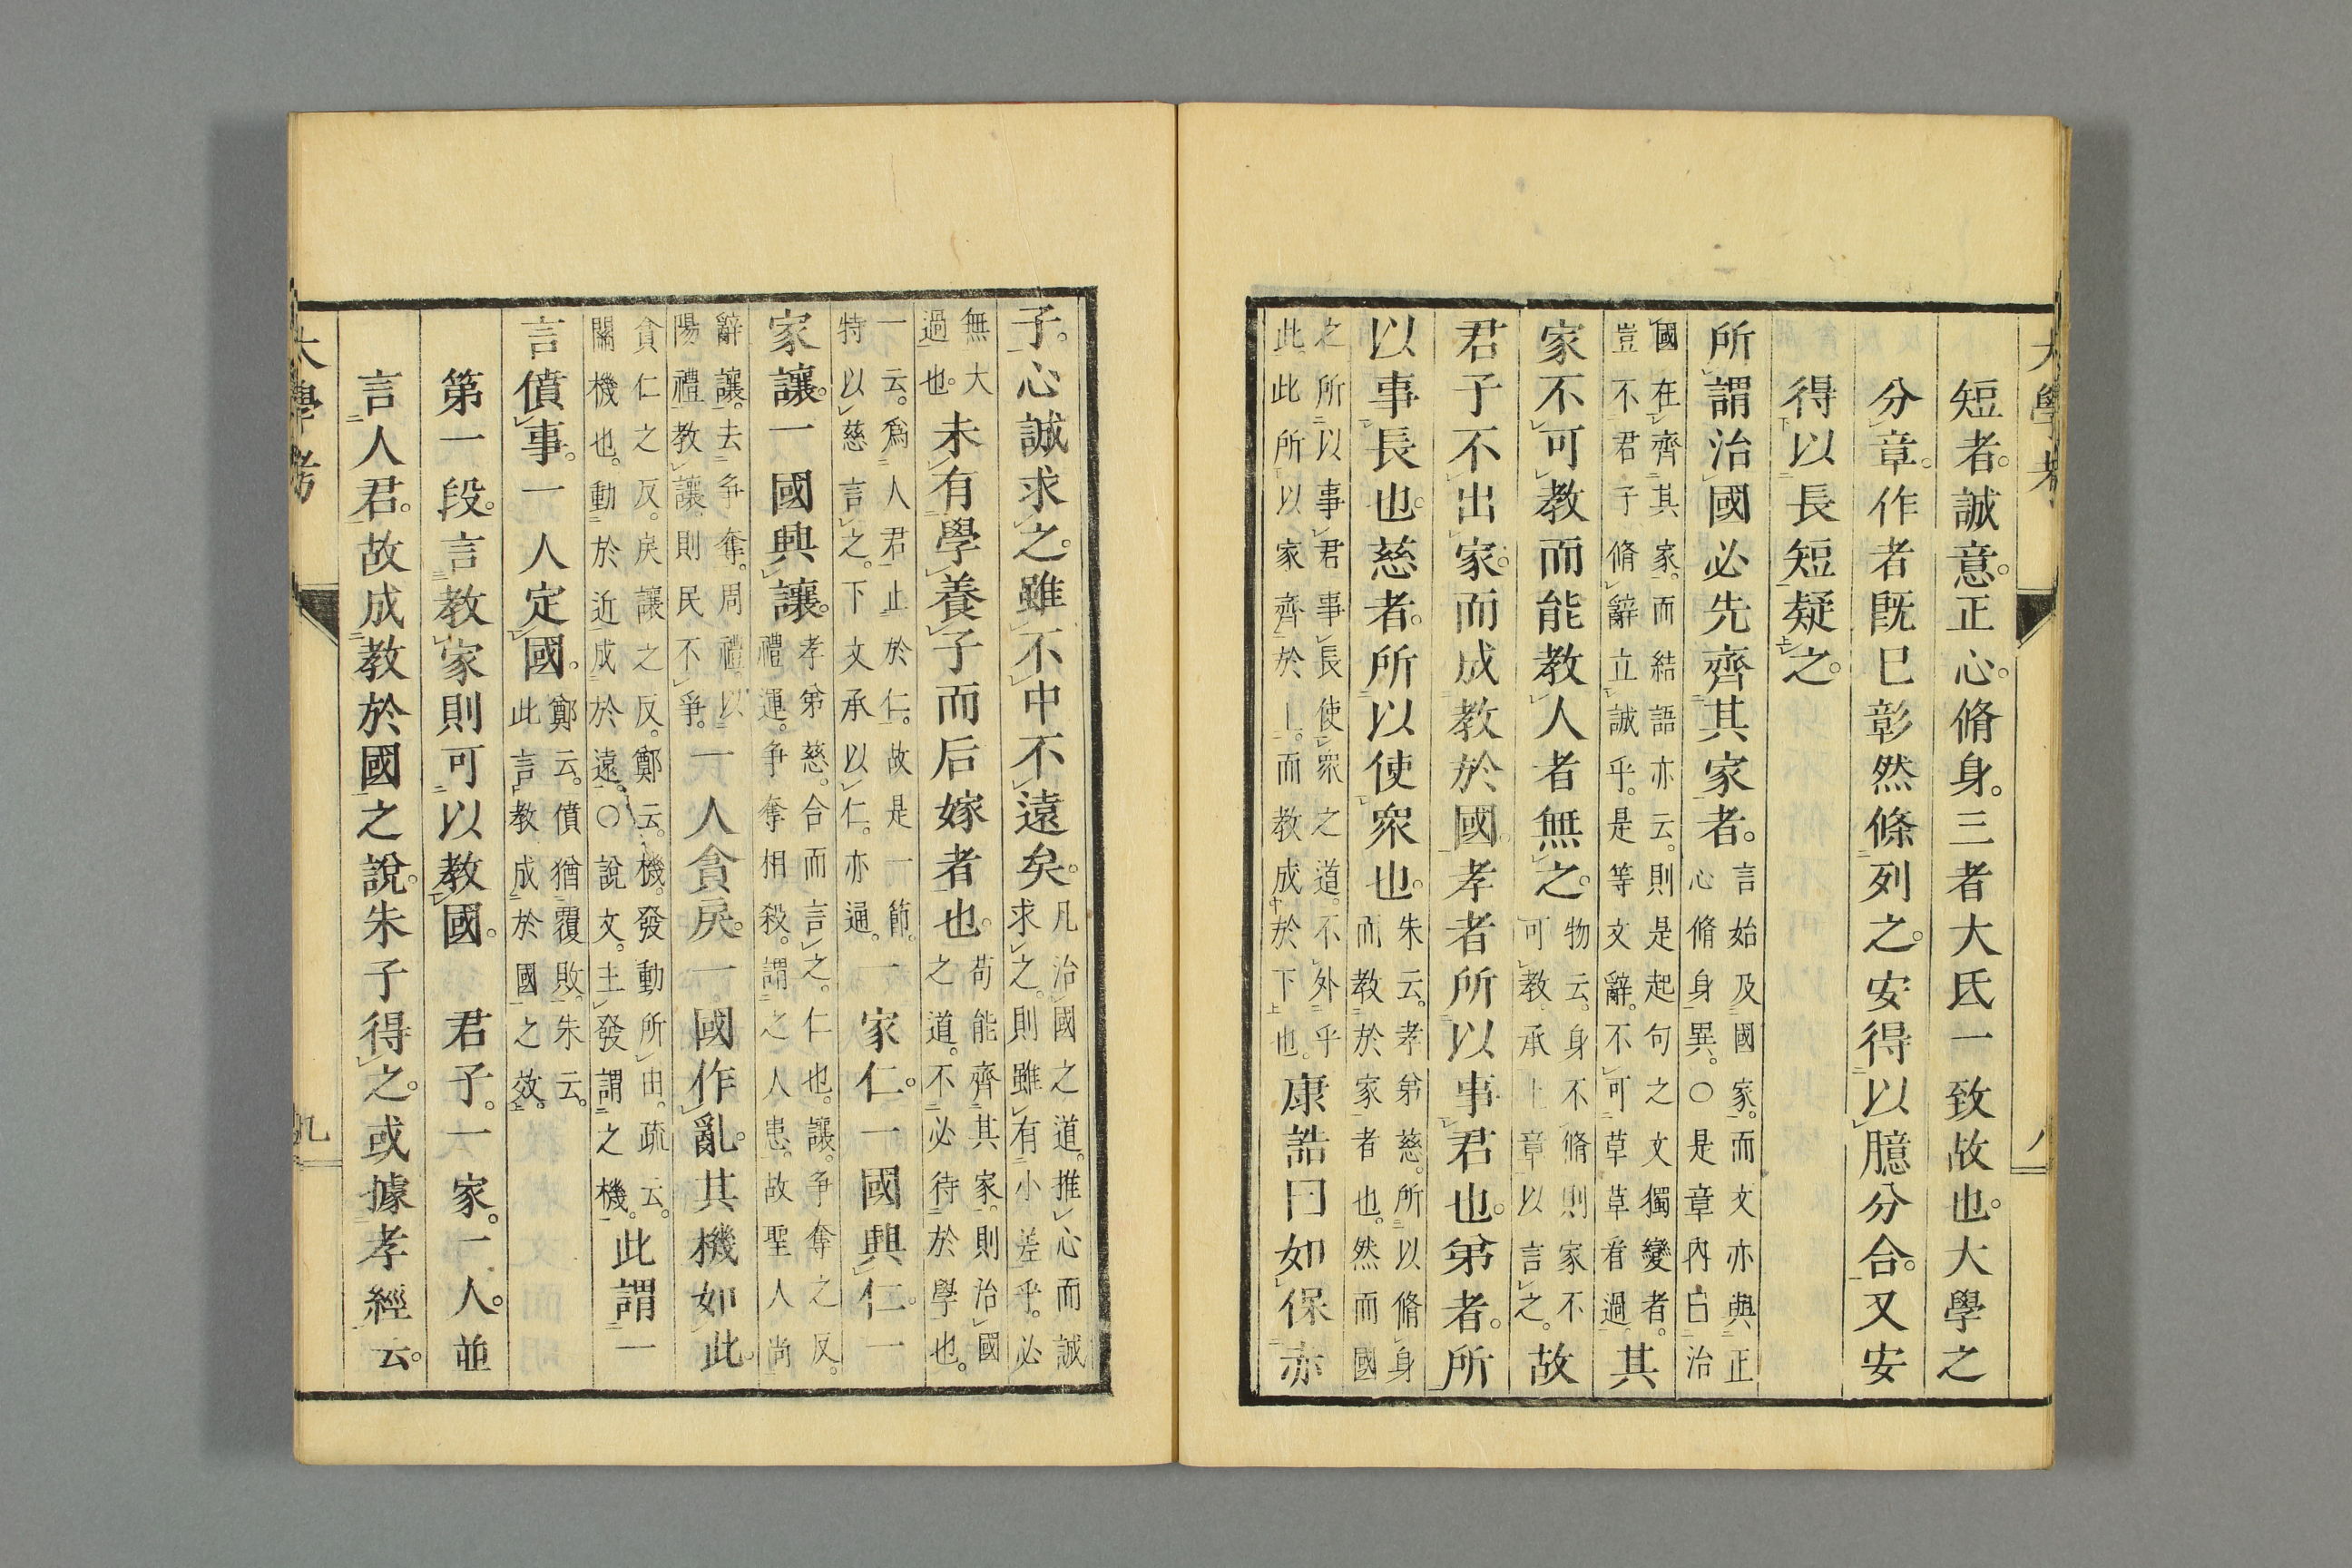 大學考
短者。誠意。正心。脩身。三者大氏一致故也。大學之
分章。作者既已彰然條列之。安得以臆分合。又安
得以長短疑之。
所謂治國必先齊其家者。言始及國家。而文亦與正
心脩身異。〇是章內曰治
國在齊其家。而結語亦云。則是起句之文獨變者。
豈不君子脩辭立誠乎。是等文辭。不可草草看過
其
家不可教而能教人者無之。物云。身不脩則家不
可教。承上章以言之。
故
君子不出家。而成教於國。孝者所以事君也。弟者。所
以事長也。慈者。所以使眾也。朱云。孝弟慈。所以脩身
而教於家者也。然而國
之所以事君事長使眾之道。不外乎
此。此所以家齊於上。而教成於下也。
康誥曰如保赤
子。心誠求之。雖不中不遠矣。凡治國之道。推心而誠
求之。則雖有小差乎。必
無大
過也。
未有學養子而后嫁者也。苟能齊其家。則治國
之道。不必待於學也。
一云。爲人君止於仁。故是一節。
特以慈言之。下文承以仁。亦通。
一家仁。一國興仁。一
家讓。一國興讓。孝弟慈。合而言之。仁也。讓。争奪之反。
禮運。争奪相殺。謂之人患。故聖人尚
辭讓。去争奪。周禮。以
陽禮教讓。則民不爭。
一人貪戾。一國作亂。其機如此。
貪仁之反。戾讓之反。鄭云。機。發動所由。疏云。
關機也。動於近成於遠。〇說文。主發謂之機。
此謂一
言僨事。一人定國。鄭云。僨猶覆敗。朱云。
此言教成於國之效。
第一段。言教家則可以教國。　君子。一家。一人。並
言人君。故成教於國之說。朱子得之。或據孝經云。
大學考
九